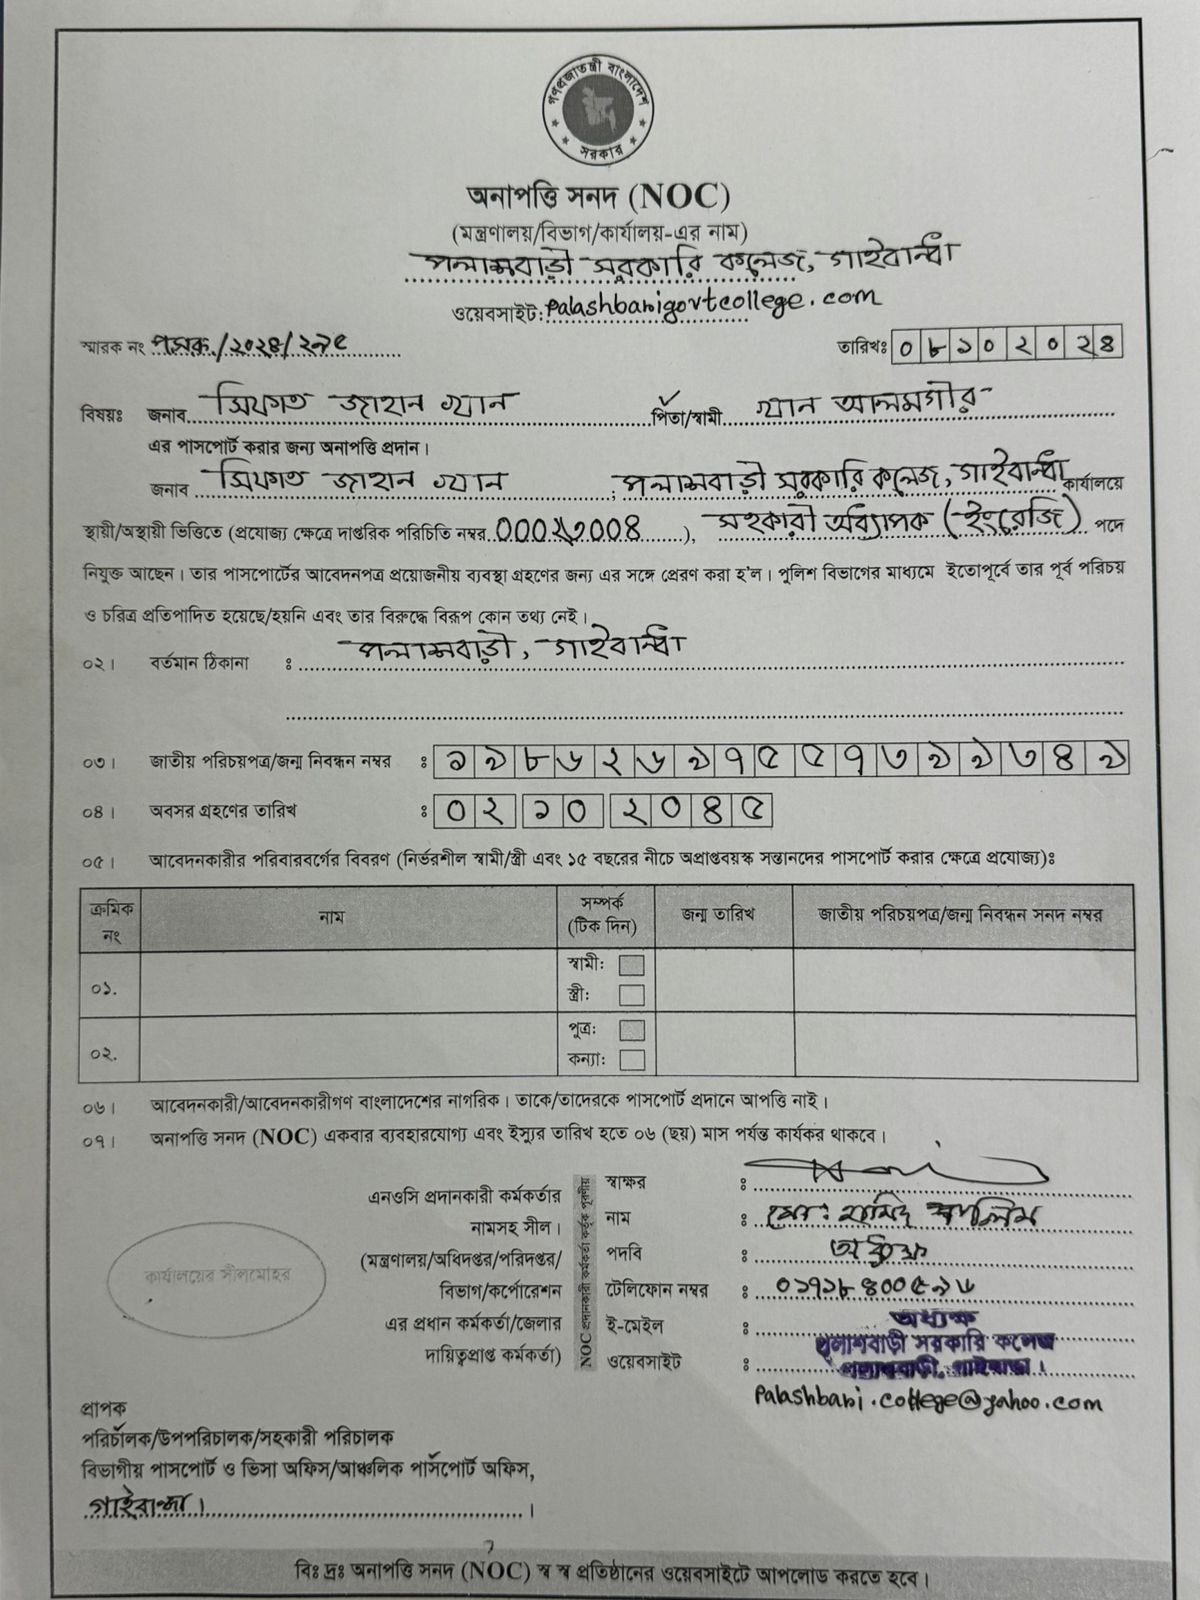 গণপ্রজাতন্ত্রী বাংলাদেশ
সরকার
অনাপত্তি সনদ (NOC)
(মন্ত্রণালয়/বিভাগ/কার্যালয়-এর নাম)
পলাশবাড়ী সরকারি কলেজ, গাইবান্ধা
ওয়েবসাইট: Palashbarigovtcollege.com
স্মারক নং পসক/২০২৪/২৯৫ তারিখঃ ০৮১০২০২৪
বিষয়ঃ জনাব সিফাত জাহান খান পিতা/স্বামী খান আলমগীর
এর পাসপোর্ট করার জন্য অনাপত্তি প্রদান।
জনাব সিফাত জাহান খান, পলাশবাড়ী সরকারি কলেজ, গাইবান্ধা কার্যালয়ে
স্থায়ী/অস্থায়ী ভিত্তিতে (প্রযোজ্য ক্ষেত্রে দাপ্তরিক পরিচিতি নম্বর ), সহকারী অধ্যাপক (ইংরেজি) পদে
নিযুক্ত আছেন। তার পাসপোর্টের আবেদনপত্র প্রয়োজনীয় ব্যবস্থা গ্রহণের জন্য এর সঙ্গে প্রেরণ করা হ'ল। পুলিশ বিভাগের মাধ্যমে ইতোপূর্বে তার পূর্ব পরিচয়
ও চরিত্র প্রতিপাদিত হয়েছে/হয়নি এবং তার বিরুদ্ধে বিরূপ কোন তথ্য নেই।
০২। বর্তমান ঠিকানা : পলাশবাড়ী, গাইবান্ধা
০৩। জাতীয় পরিচয়পত্র/জন্ম নিবন্ধন নম্বর : ১৯৮৬২৬৯৭৫৫৭৩৯৯৩৪৯
০৪। অবসর গ্রহণের তারিখ : ০২ ১০ ২০৪৫
০৫। আবেদনকারীর পরিবারবর্গের বিবরণ (নির্ভরশীল স্বামী/স্ত্রী এবং ১৫ বছরের নীচে অপ্রাপ্তবয়স্ক সন্তানদের পাসপোর্ট করার ক্ষেত্রে প্রযোজ্য)ঃ
ক্রমিক নং নাম সম্পর্ক (টিক দিন) জন্ম তারিখ জাতীয় পরিচয়পত্র/জন্ম নিবন্ধন সনদ নম্বর
০১. স্বামী:
স্ত্রী:
০২. পুত্র:
কন্যা:
০৬। আবেদনকারী/আবেদনকারীগণ বাংলাদেশের নাগরিক। তাকে/তাদেরকে পাসপোর্ট প্রদানে আপত্তি নাই।
০৭। অনাপত্তি সনদ (NOC) একবার ব্যবহারযোগ্য এবং ইস্যুর তারিখ হতে ০৬ (ছয়) মাস পর্যন্ত কার্যকর থাকবে।
কার্যালয়ের সীলমোহর
এনওসি প্রদানকারী কর্মকর্তার
নামসহ সীল।
(মন্ত্রণালয়/অধিদপ্তর/পরিদপ্তর/
বিভাগ/কর্পোরেশন
এর প্রধান কর্মকর্তা/জেলার
দায়িত্বপ্রাপ্ত কর্মকর্তা)
NOC প্রদানকারী কর্মকর্তা কর্তৃক পূরণীয়
স্বাক্ষর :
নাম : মো:
পদবি : অধ্যক্ষ
টেলিফোন নম্বর : ০১৭১৮৪০০৫৯৬
ই-মেইল : অধ্যক্ষ
পলাশবাড়ী সরকারি কলেজ
ওয়েবসাইট : পলাশবাড়ী, গাইবান্ধা।
Palashbari.college@yahoo.com
প্রাপক
পরিচালক/উপপরিচালক/সহকারী পরিচালক
বিভাগীয় পাসপোর্ট ও ভিসা অফিস/আঞ্চলিক পাসপোর্ট অফিস,
গাইবান্ধা।
বিঃ দ্রঃ অনাপত্তি সনদ (NOC) স্ব স্ব প্রতিষ্ঠানের ওয়েবসাইটে আপলোড করতে হবে।